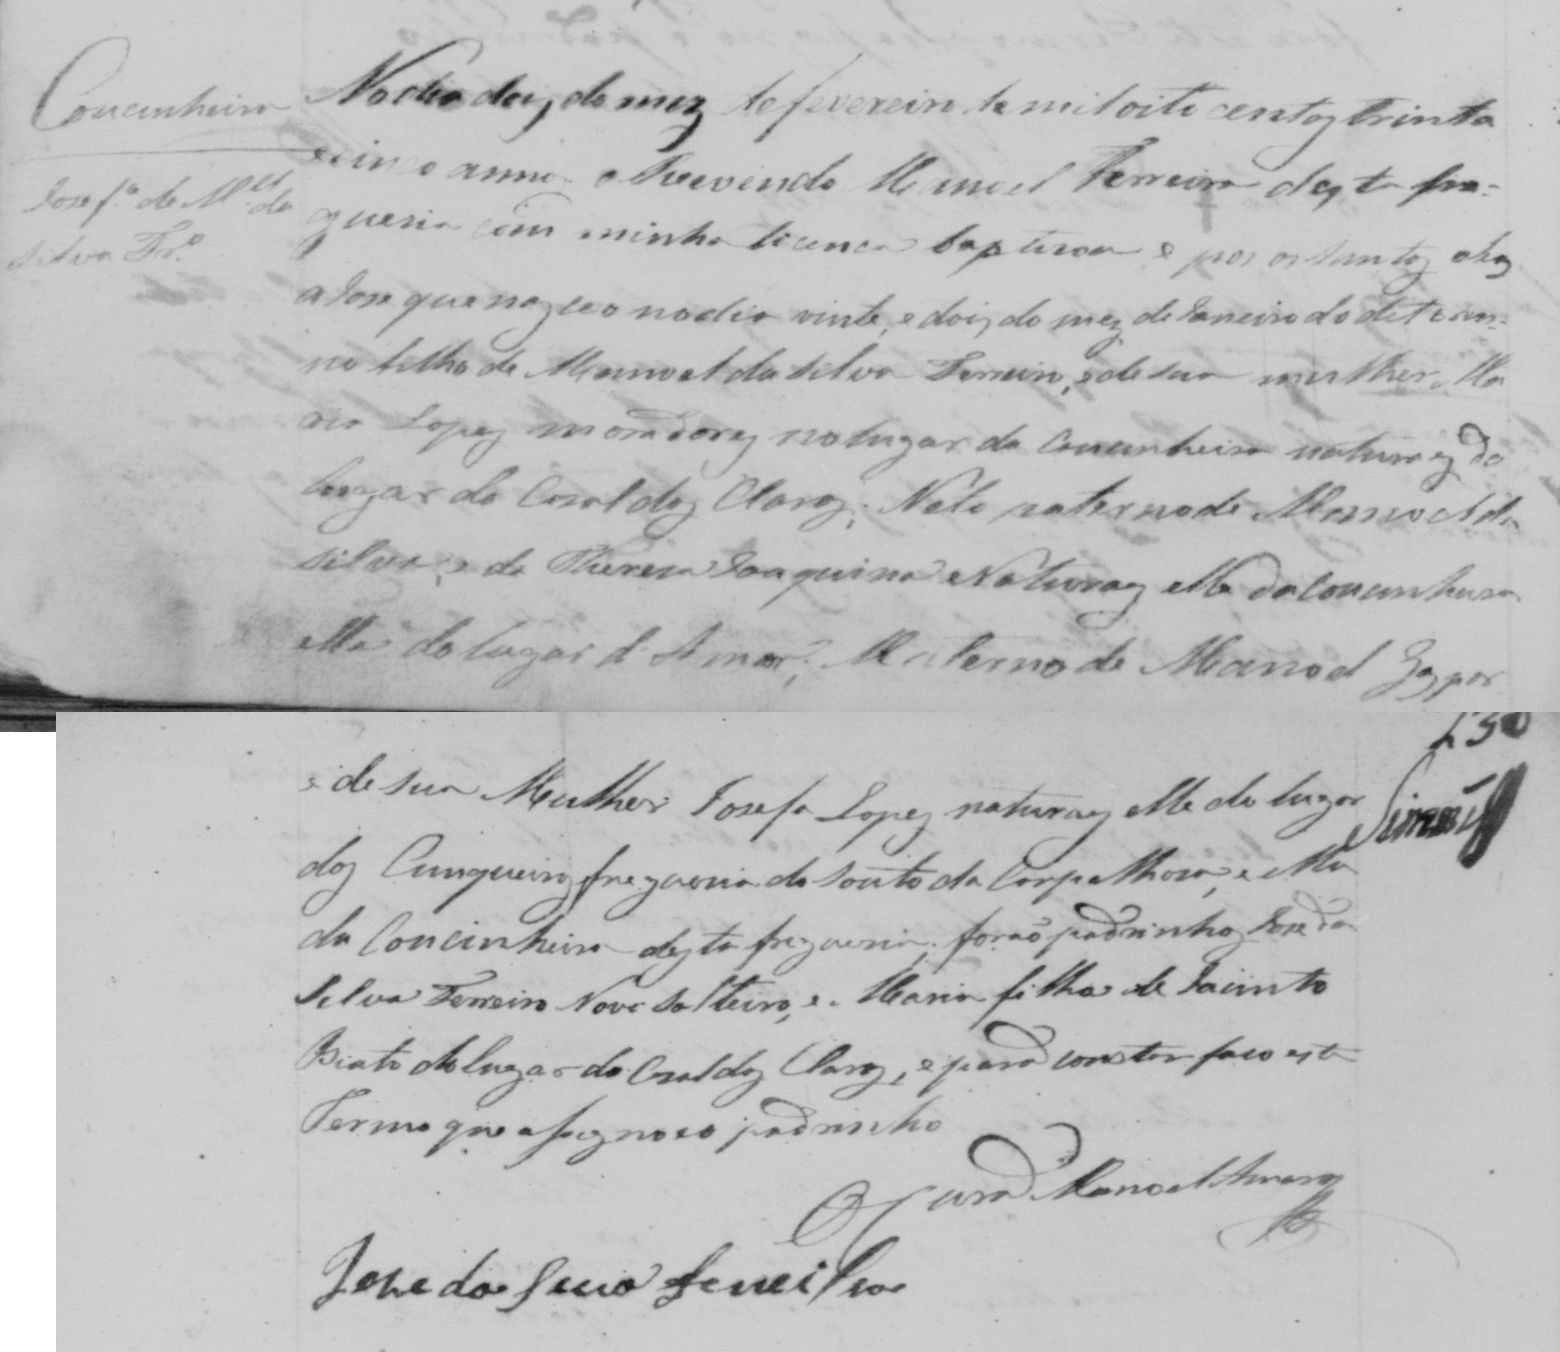 Coucinheira
Jose f.º de M.el da
Silva Fr.º
No dia doiz do mez de fevereiro de mil oito centoz trinta
e cinco annoz o Reverendo Manoel Ferreira dezta fre-
guesia com minha licenca baptizou e poz oz Santoz oleoz
a Jose que nazceo no dia vinte, e doiz do mez de Janeiro do dito an-
no filho de Manoel da Silva Ferreiro, e de sua mulher Ma
ria Lopez moradorez no lugar da Coucinheira naturaez do
lugar do Cazal doz Claroz; Neto paterno de Manoel da
Silva, e de Thereza Joaquina Naturaez elle da Coucinheira
ella do lugar d'Amor; Materno de Manoel Gazpar
e de sua Mulher Josefa Lopez naturaez elle do lugar
doz Cunqueiroz freguesia do Souto da Carpalhoza, e ella
da Coucinheira dezta freguesia; forão padrinhoz Jose da
Silva Ferreiro Novo Solteiro, e Maria filha de Jacinto
do lugar do Cazal doz Claroz, e para constar faco ezte
Termo que assignou o padrinho
O Cura Manoel
Jose da Silva
130